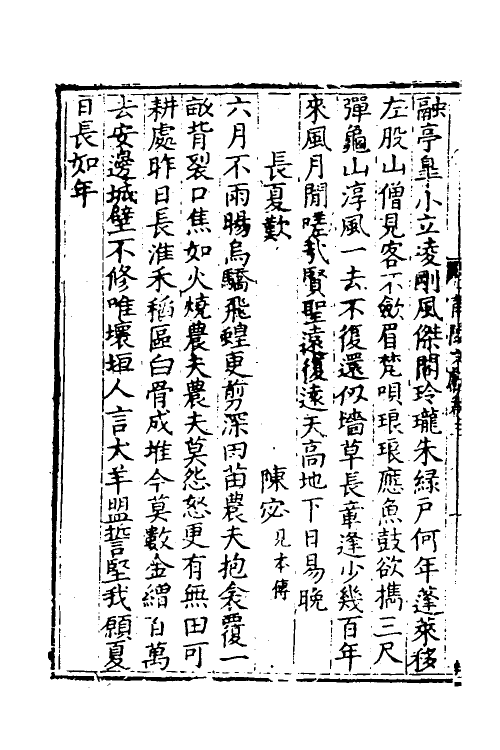 融亭皐小立凌剛風傑閣玲瓏朱緑戸何年蓬萊移
左股山僧見客不斂眉梵唄琅琅應魚鼓欲擕三尺
彈龜山淳風一去不復還似墻草長章逢少幾百年
來風月閒嗟哉賢聖遠復遠天高地下日易晩
長夏歎 陳宓見本傳
六月不雨暘烏驕飛蝗更剪深田苗農夫抱耒覆一
畝背裂口焦如火燒農夫農夫莫怨怒更有無田可
耕處昨日長淮禾稻區白骨成堆今莫數金繒百萬
去安邊城壁不修唯壞垣人言犬羊盟誓堅我願夏
日長如年